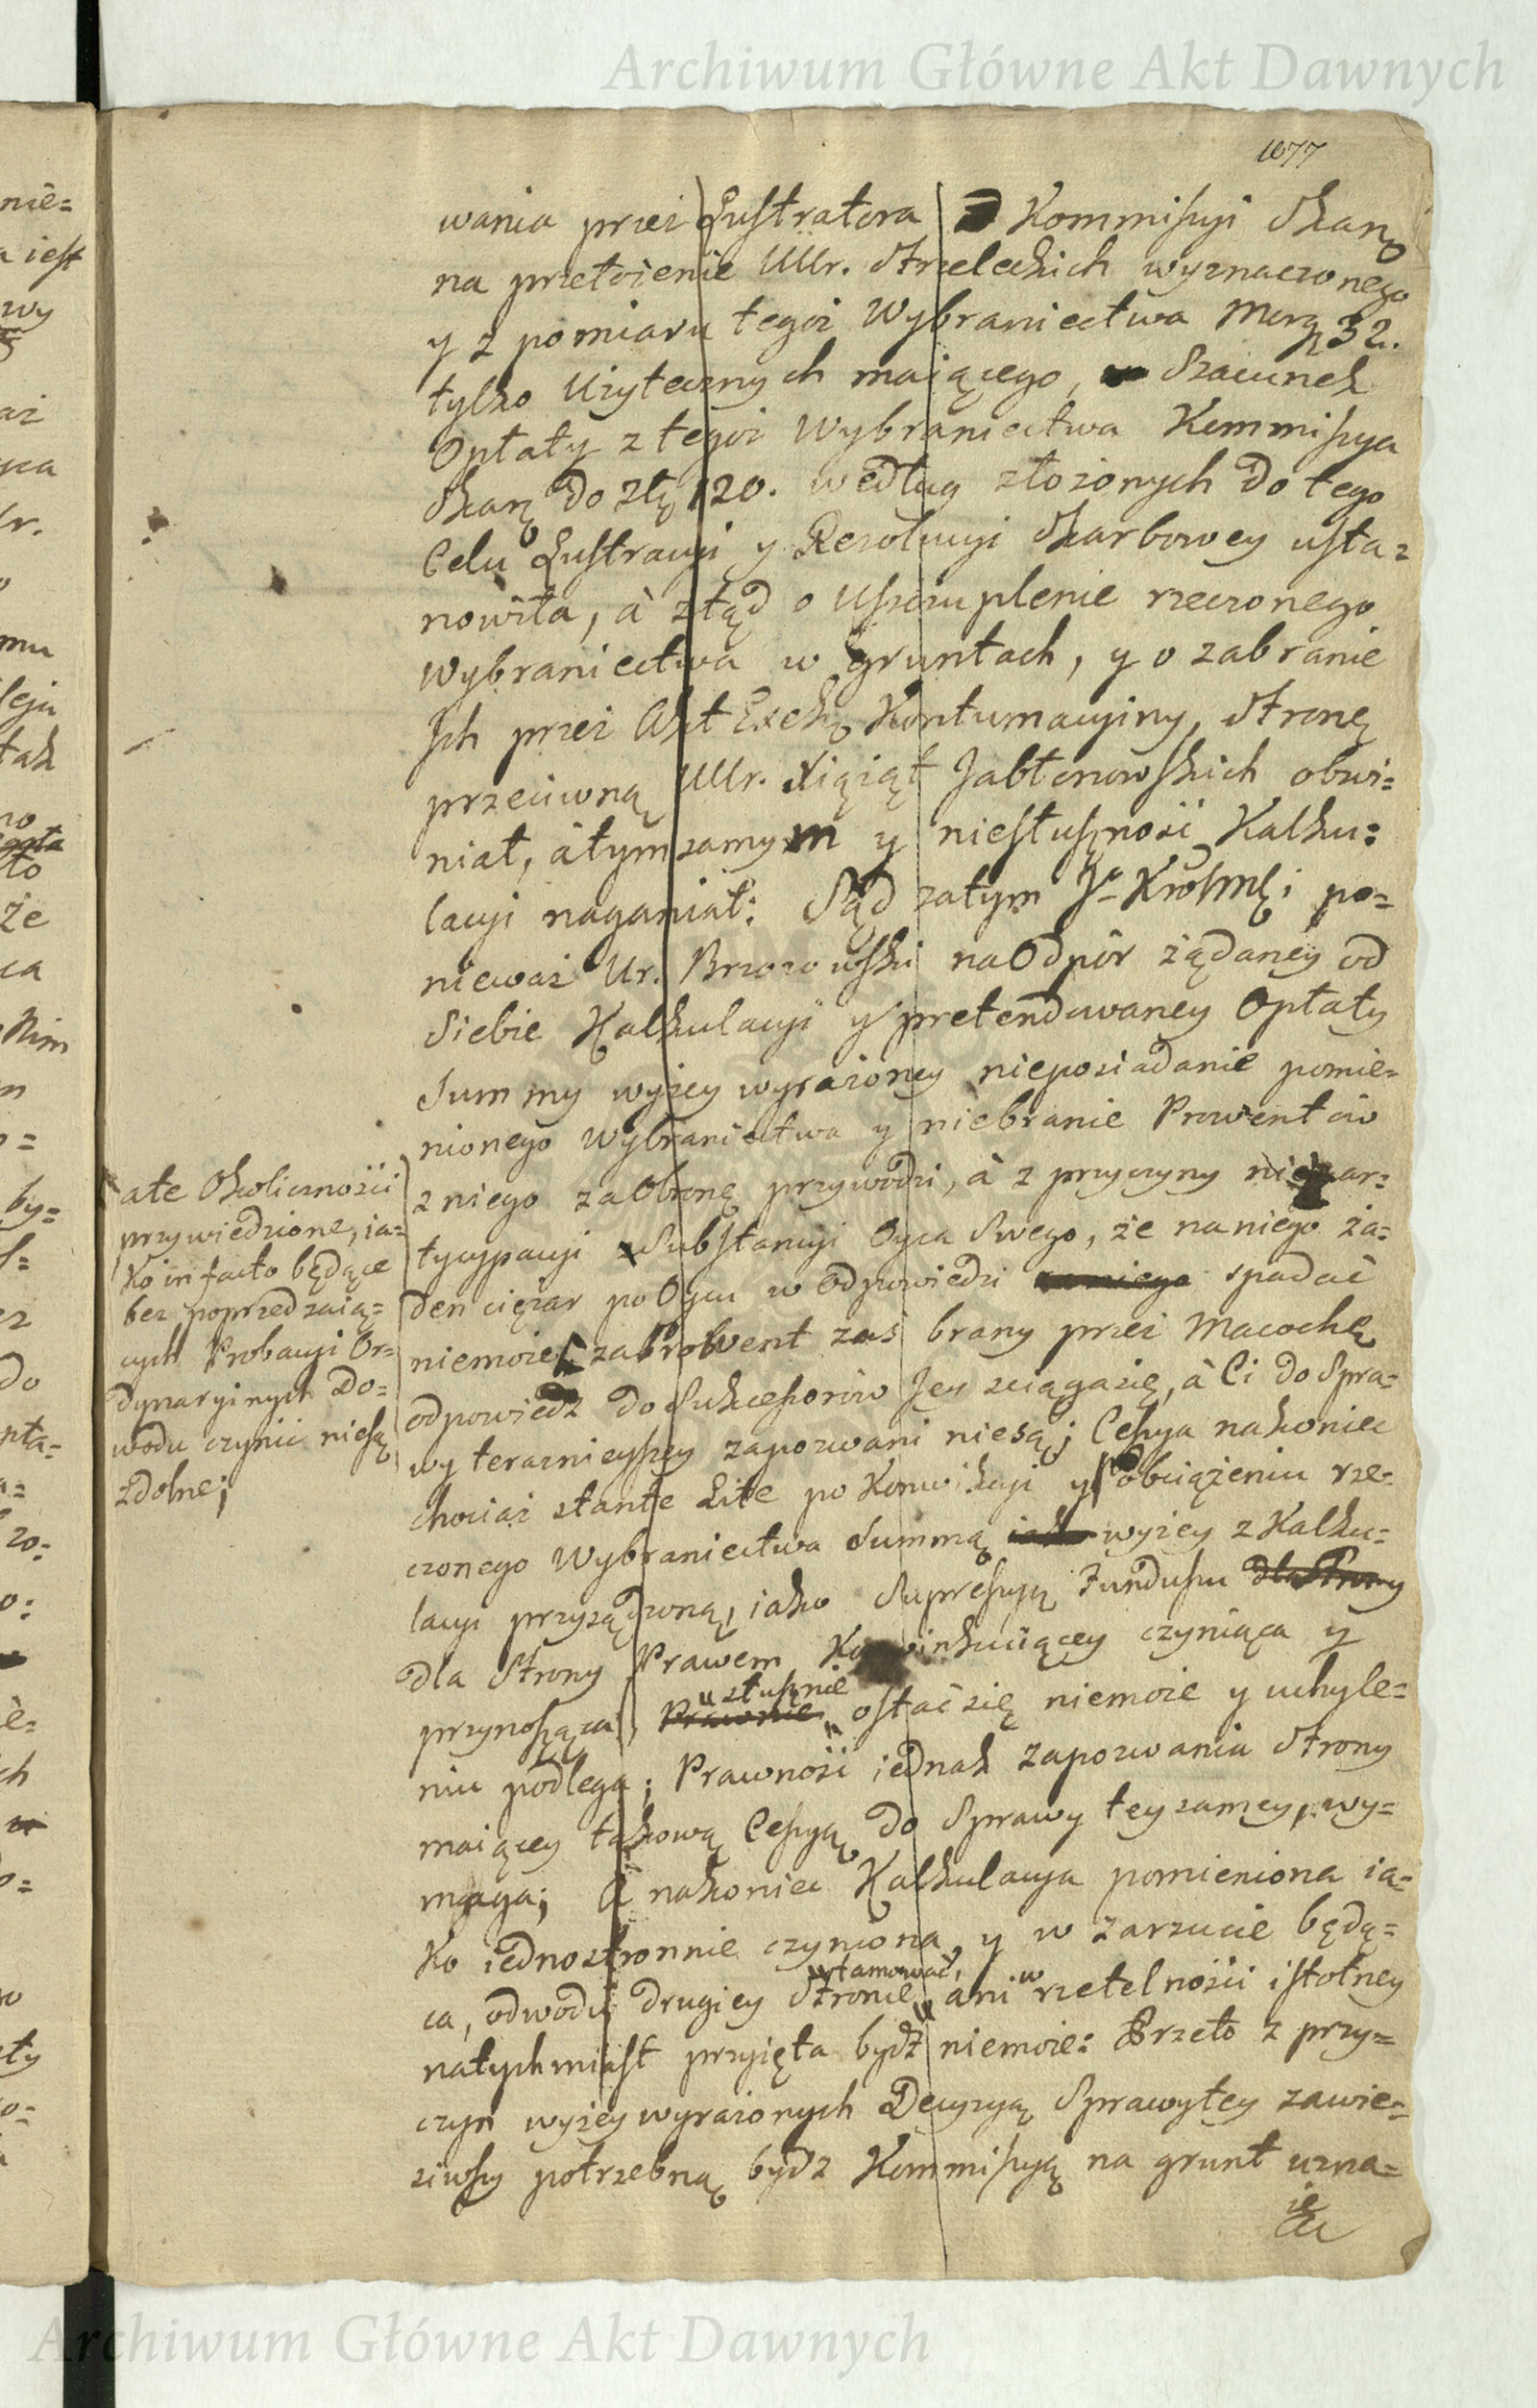 Archiwum Główne Akt Dawnych
1077
wania przez Lustratora Kommissyi Skarą
na przełożenie UUr. Strzeleckich wyznaczonego
y z pomiaru tegoż Wybraniectwa Morg 32.
tylko Użytecznych maiącego, Szacunek
Opłaty z tegoż Wybraniectwa Kommissya
Skarą do złł 120. według złożonych do tego
Celu Lustracyi y Rezolucyi Skarbowey usta=
nowiła, à ztąd o Uszczuplenie rzeczonego
Wybraniectwa w gruntach, y o zabranie
Ich przez Akt Kontumacyiny, Stronę
przeciwną UUr. Xiążąt Jabłonowskich obwi=
niał, à tym samym y niesłuszność Kalku=
lacyi naganiał: Sąd zatym po=
nieważ Ur. Brzozowski na Odpór żądaney od
Siebie Kalkulacyi y pretendowaney Opłaty
Summy wyżey wyrażoney nieposiadanie pomie=
nionego Wybraniectwa y niebranie Prowentów
z niego za Obronę przywodzi, à z przyczyny niepar=
tycypacyi Substancyi Oyca Swego, że na niego ża=
den ciężar po Oycu w Odpowiedzi spadać
niemoże za Prowent zaś brany przez Macochę
odpowiedz do Sukcessorów Jey ściąga się, à Ci do Spra=
wy teraznieyszey zapozwani niesą; Cessya nakoniec
chociaż stante Lite po Konwikcyi y obciążeniu rze=
czonego Wybraniectwa Summą wyżey z Kalku=
lacyi przysądzoną, iako Supressyą Funduszu dla Strony
dla Strony Prawem Konwinkuiącey czyniąca y
słusznie
przynosząca, Prawnie ostać się niemoże y uchyle=
niu podlega; Prawność iednak zapozwania Strony
maiącey takową Cessyą do Sprawy tey samey, wy=
maga; A nakoniec Kalkulacya pomieniona ia=
ko iednostronnie czyniona, y w zarzucie będą=
tamować,
ca, odwodu drugiey Stronie, ani w rzetelności istotney
natychmiast przyięta bydź niemoże: Przeto z przy=
czyn wyżey wyrażonych Decyzyą Sprawy tey zawie=
siwszy potrzebną bydź Kommissyą na grunt uzna=
ie
ale Okoliczności
przywiedzione, ia=
ko in facto będące
bez poprzedzaią=
cych Probacyi Or=
dynaryinych Do=
wodu czynić niesą
zdolne;
nie=
a iest
wy
mu
że
ca
Nim
by=
do
Archiwum Główne Akt Dawnych